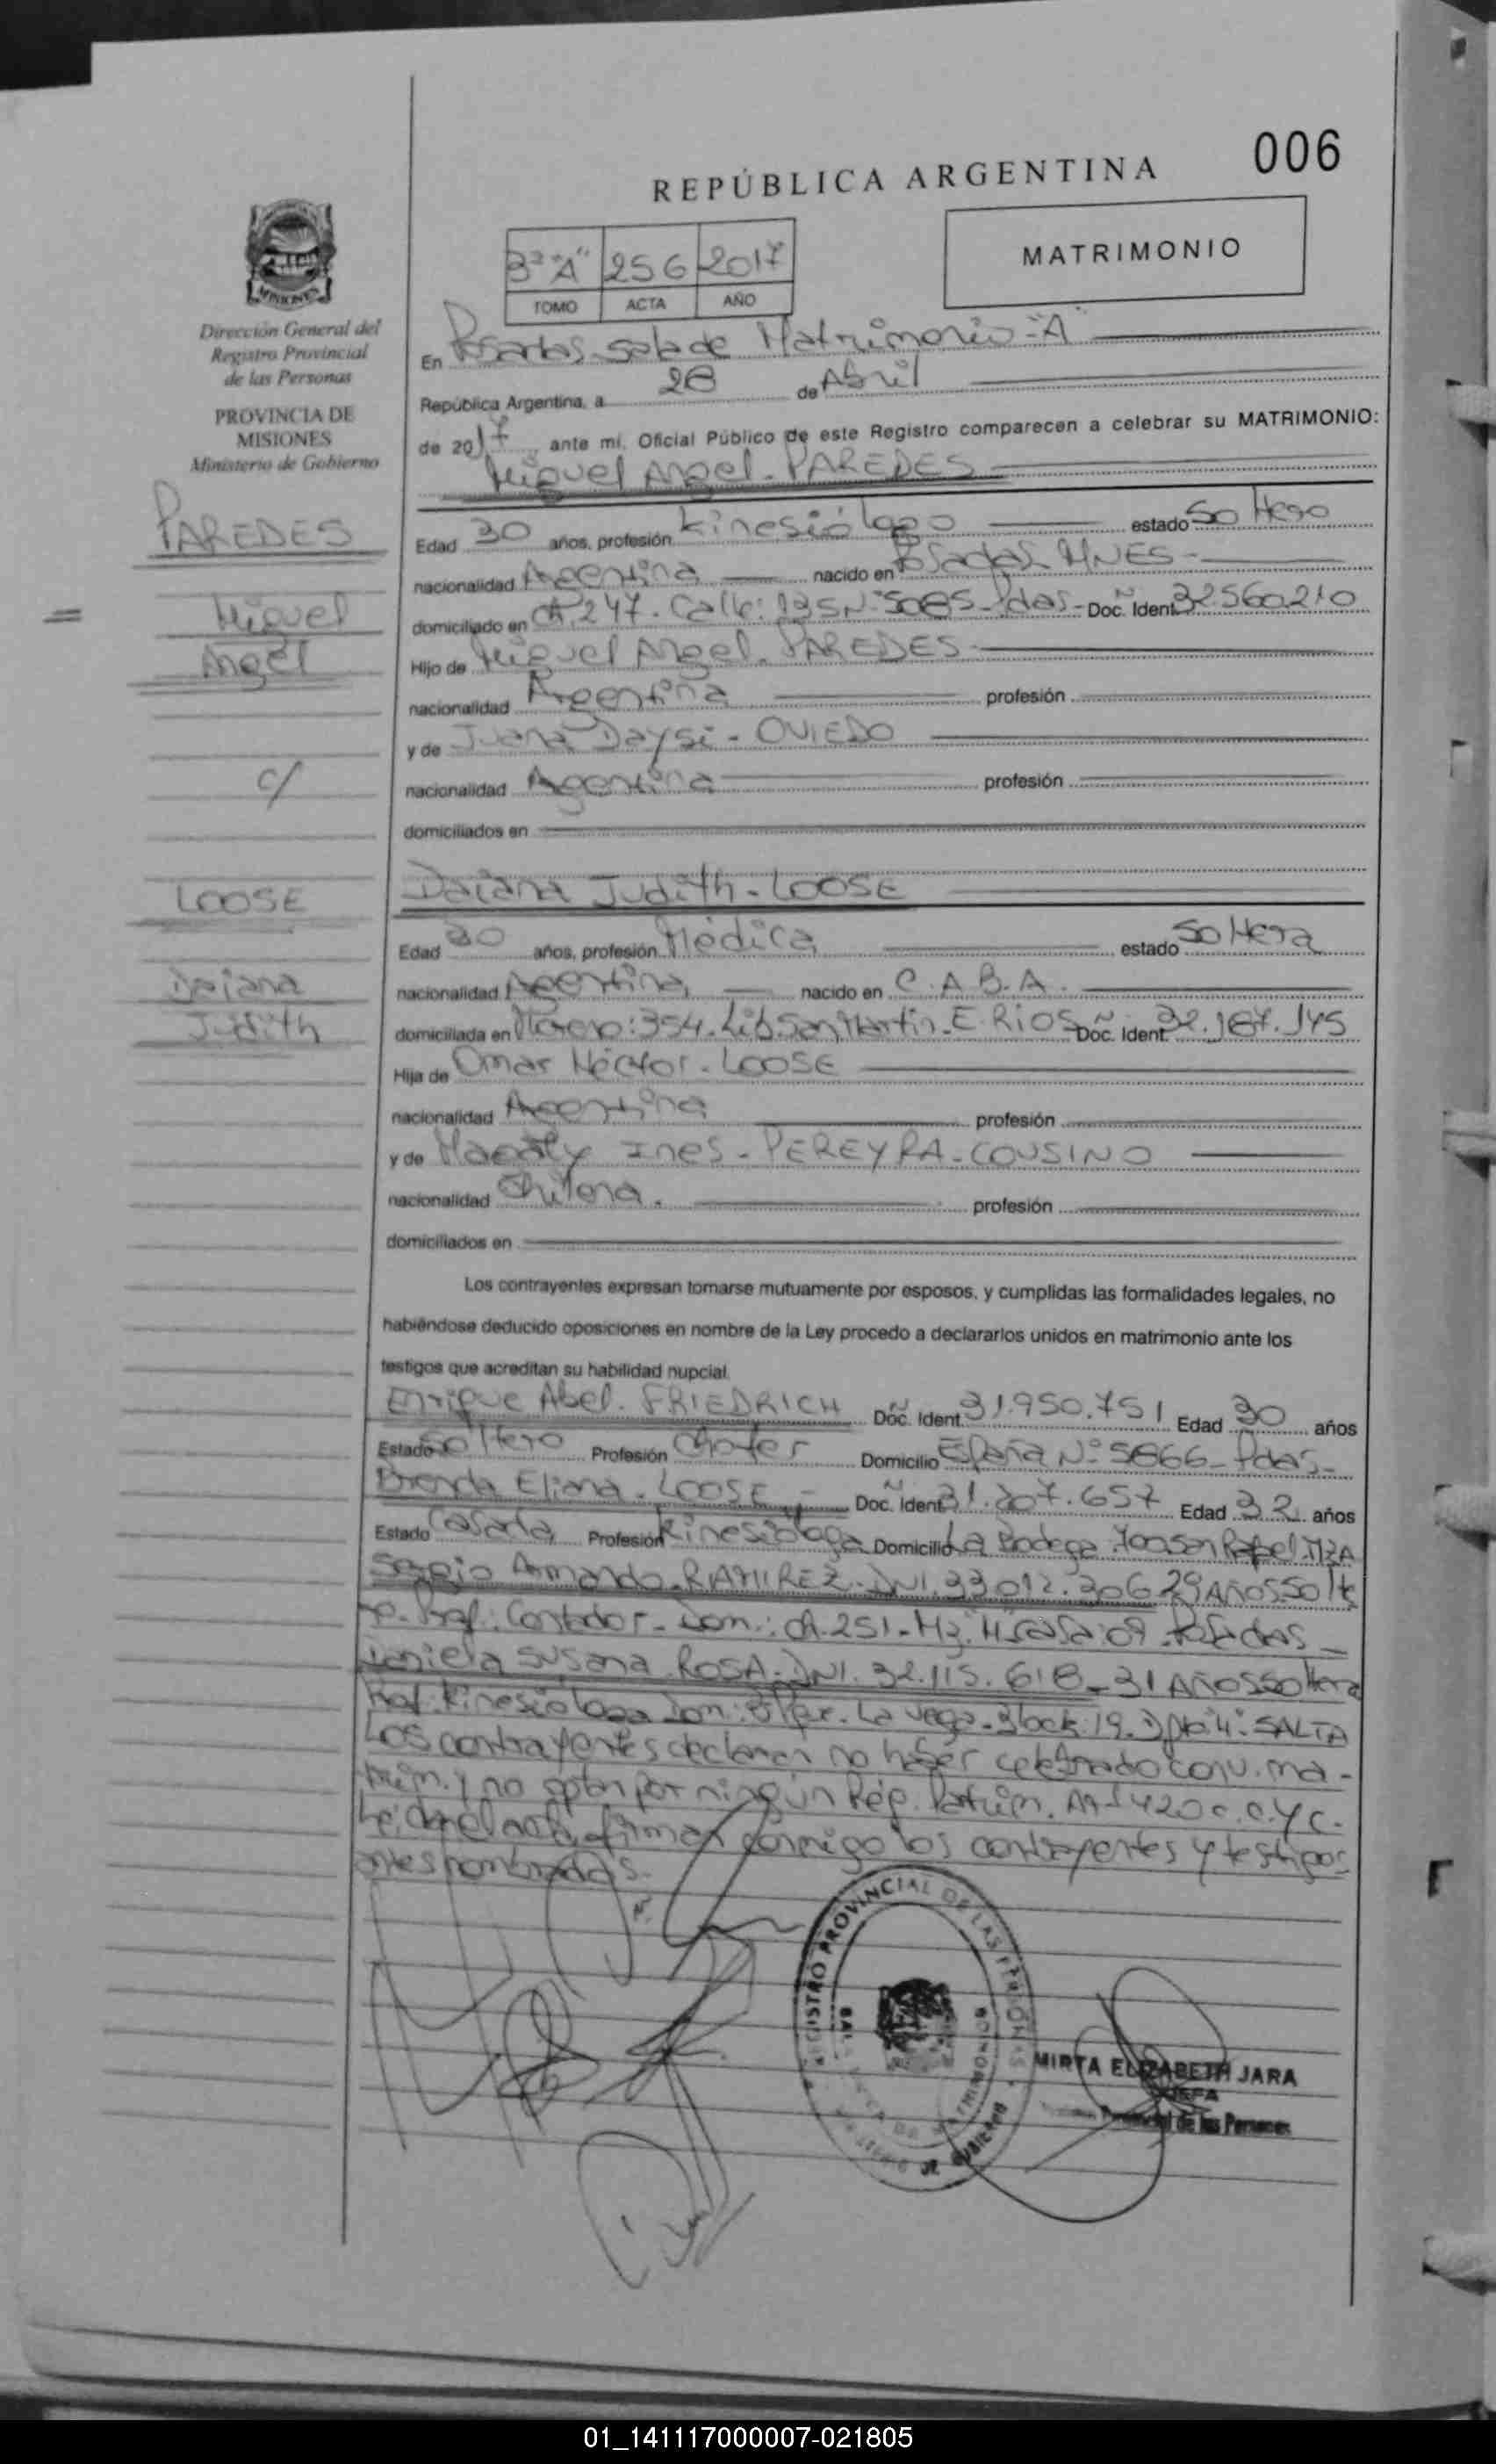 006
REPÚBLICA ARGENTINA
MATRIMONIO
3º "A" 256 2017
TOMO ACTA AÑO
Dirección General del
Registro Provincial
de las Personas
PROVINCIA DE
MISIONES
Ministerio de Gobierno
PAREDES
Miguel
Angel
c/
LOOSE
Daiana
Judith
En Posadas sala de Matrimonio "A"
República Argentina, a 28 de Abril
de 2017, ante mí, Oficial Público de este Registro comparecen a celebrar su MATRIMONIO:
Miguel Angel - PAREDES
Edad 30 años, profesión Kinesiólogo estado Soltero
nacionalidad Argentina nacido en Posadas MNES -
domiciliado en CH. 247. Calle: 135 Nº 5085 - Pdas - Doc. Ident. 32560210
Hijo de Miguel Angel. PAREDES -
nacionalidad Argentina profesión
y de Juana Daysi - OVIEDO
nacionalidad Argentina profesión
domiciliados en
Daiana Judith - LOOSE
Edad 30 años, profesión Médica estado Soltera
nacionalidad Argentina nacido en C.A.B.A.
domiciliada en Moreno: 354. Lib. San Martin. E. RIOS Doc. Ident. 32.187.145
Hija de Omar Héctor - LOOSE
nacionalidad Argentina profesión
y de Ines - PEREYRA - COUSINO
nacionalidad Chilena. profesión
domiciliados en
Los contrayentes expresan tomarse mutuamente por esposos, y cumplidas las formalidades legales, no
habiéndose deducido oposiciones en nombre de la Ley procedo a declararlos unidos en matrimonio ante los
testigos que acreditan su habilidad nupcial.
Enrique Abel. FRIEDRICH Doc. Ident. 31.950.751 Edad 30 años
Estado Soltero Profesión Chofer Domicilio España Nº 5866 - Pdas -
Brenda Eliana - LOOSE - Doc. Ident. 31.207.657 Edad 32 años
Estado Casada Profesión Kinesióloga Domicilio La Bodega 700 San Rafael MZA
Sergio Armando - RAMIREZ - DNI. 33.012.306 29 AÑOS Solte
ro. Prof: Contador - Dom: CH. 251 - Mz. casa: 09 - Posadas -
Daniela Susana ROSA - DNI. 32.115.618 - 31 AÑOS Soltera
Prof: Kinesióloga Dom: La Vega - Block: 19. Dpto "4" - SALTA
Los contrayentes declaran no haber celebrado conv. ma-
trim. y no optan por ningún Rég. Patrim. Art 420 c.c.y c.
Leída el acta, firman conmigo los contrayentes y testigos
antes nombrados.
REGISTRO PROVINCIAL DE LAS PERSONAS
MINISTERIO DE GOBIERNO
MIRTA ELIZABETH JARA
JEFA
Provincial de las Personas
01_141117000007-021805